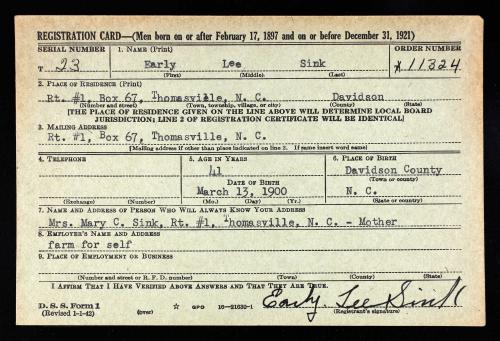 REGISTRATION CARD—(Men born on or after February 17, 1897 and on or before December 31, 1921)
SERIAL NUMBER 1. NAME (Print) ORDER NUMBER
T 23 Early Lee Sink 11324
(First) (Middle) (Last)
2. PLACE OF RESIDENCE (Print)
Rt. #1, Box 67, Thomasville, N. C. Davidson
(Number and street) (Town, township, village, or city) (County) (State)
[THE PLACE OF RESIDENCE GIVEN ON THE LINE ABOVE WILL DETERMINE LOCAL BOARD
JURISDICTION; LINE 2 OF REGISTRATION CERTIFICATE WILL BE IDENTICAL]
3. MAILING ADDRESS
Rt. #1, Box 67, Thomasville, N. C.
[Mailing address if other than place indicated on line 2. If same insert word same]
4. TELEPHONE 5. AGE IN YEARS 6. PLACE OF BIRTH
41 Davidson County
DATE OF BIRTH (Town or county)
March 13, 1900 N. C.
(Exchange) (Number) (Mo.) (Day) (Yr.) (State or country)
7. NAME AND ADDRESS OF PERSON WHO WILL ALWAYS KNOW YOUR ADDRESS
Mrs. Mary C. Sink, Rt. #1, Thomasville, N. C. - Mother
8. EMPLOYER'S NAME AND ADDRESS
farm for self
9. PLACE OF EMPLOYMENT OR BUSINESS
(Number and street or R. F. D. number) (Town) (County) (State)
I AFFIRM THAT I HAVE VERIFIED ABOVE ANSWERS AND THAT THEY ARE TRUE.
D. S. S. Form 1 Early Lee Sink
(Revised 1-1-42) (over) ☆ GPO 16—21632-1 (Registrant's signature)